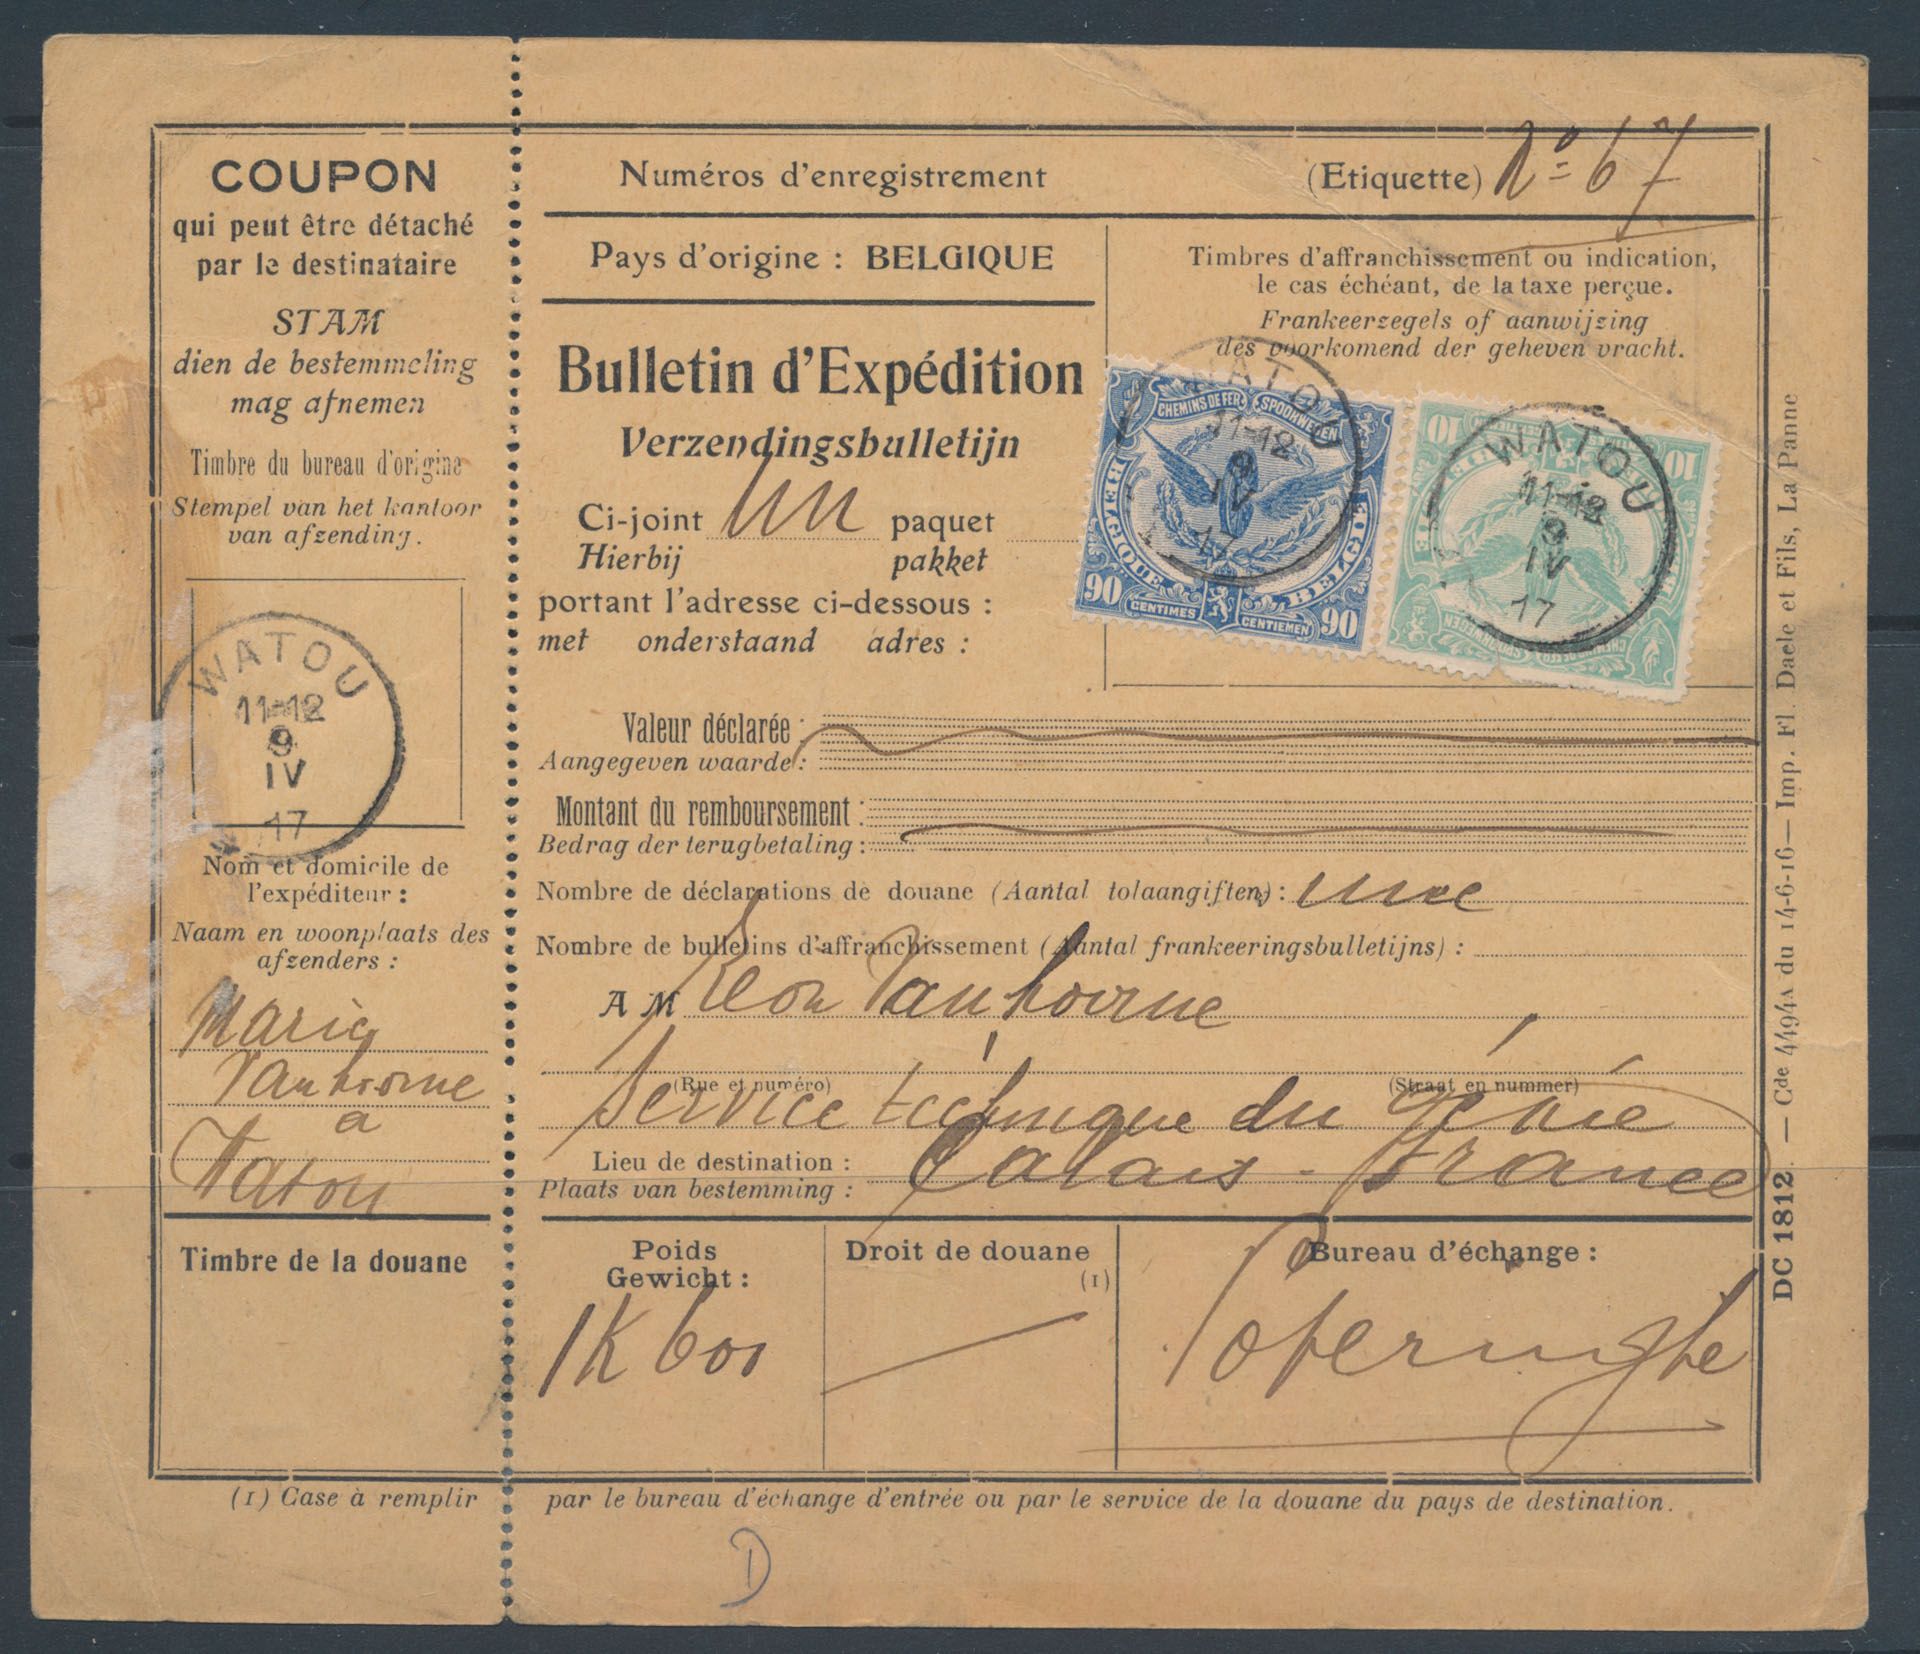 COUPON
qui peut être détaché
par le destinataire
STAM
dien de bestemmeling
mag afnemen
Timbre du bureau d'origine
Stempel van het kantoor
van afzending.
WATOU
11-12
9
IV
17
Nom et domicile de
l'expéditeur :
Naam en woonplaats des
afzenders :
Maria
à
Watou
Timbre de la douane
Numéros d'enregistrement
(Etiquette) No 67
Pays d'origine : BELGIQUE
Timbres d'affranchissement ou indication,
le cas échéant, de la taxe perçue.
Frankeerzegels of aanwijzing
des voorkomend der geheven vracht.
Bulletin d'Expédition
Verzendingsbulletijn
Ci-joint un paquet
Hierbij pakket
portant l'adresse ci-dessous :
met onderstaand adres :
CHEMINS DE FER SPOORWEGEN
BELGIQUE BELGIË
90 CENTIMES CENTIEMEN 90
WATOU
11-12
9
IV
17
10 10
CHEMINS DE FER SPOORWEGEN
WATOU
11-12
9
IV
17
Valeur déclarée :
Aangegeven waarde :
Montant du remboursement :
Bedrag der terugbetaling :
Nombre de déclarations de douane (Aantal tolaangiften) : une
Nombre de bulletins d'affranchissement (Aantal frankeeringsbulletijns) :
A M Léon
(Rue et numéro) (Straat en nummer)
Service technique du Génie
Lieu de destination : Calais - France
Plaats van bestemming :
Poids
Gewicht :
1K600
Droit de douane
(1)
Bureau d'échange :
Poperinghe
(1) Case à remplir par le bureau d'échange d'entrée ou par le service de la douane du pays de destination.
D
DC 1812. — Cde 4494A du 14-6-16 — Imp. Fl. Daele et Fils, La Panne